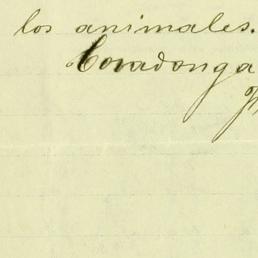 los animales.
Covadonga